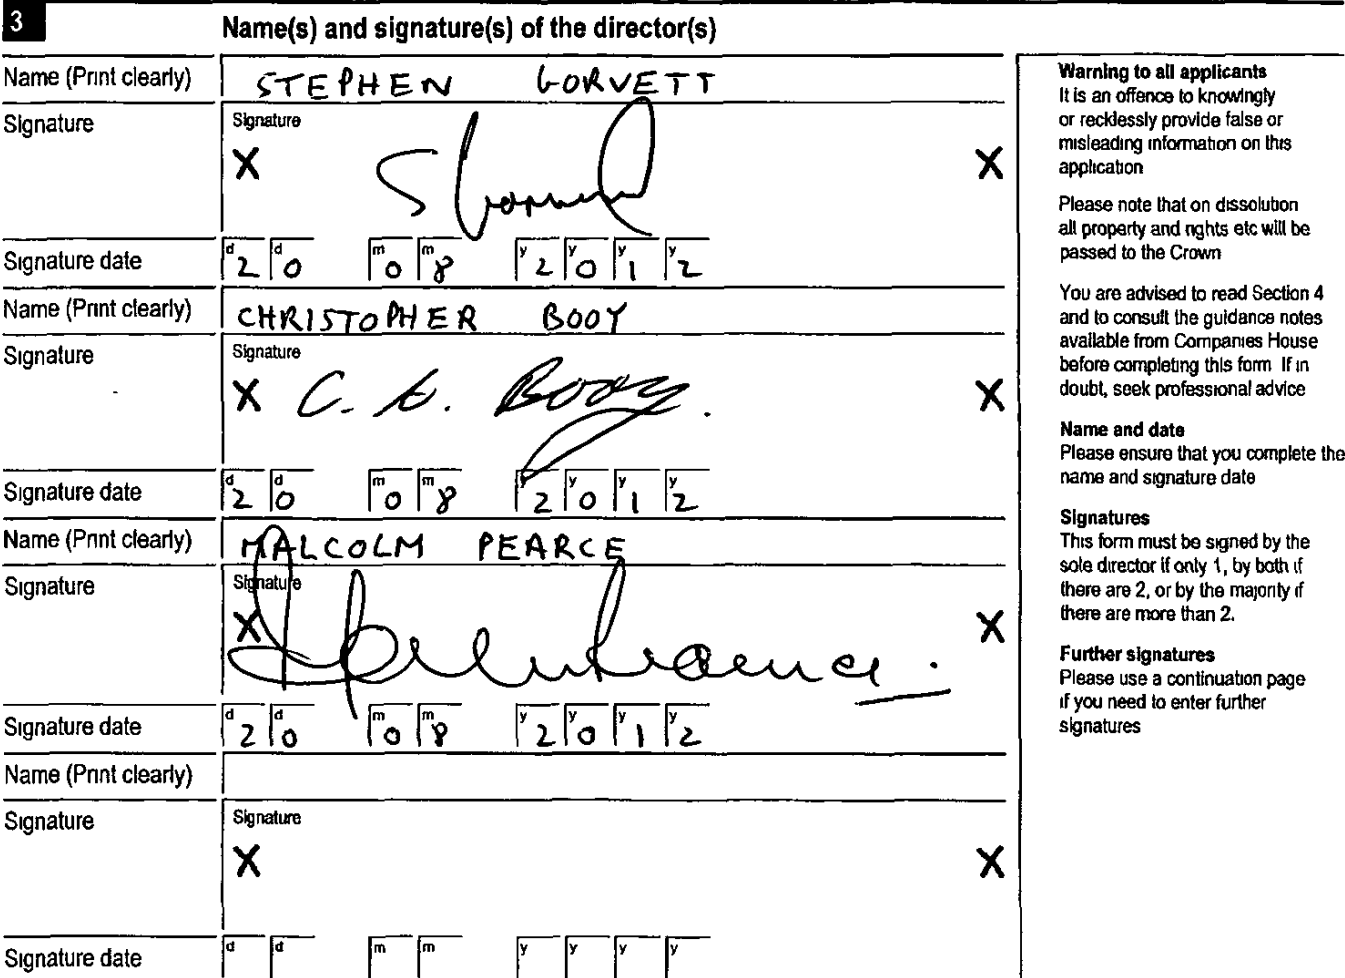 3
Name(s) and signature(s) of the director(s)
Name (Print clearly) STEPHEN GORVETT
Signature Signature
X X
Signature date d 2 d 0 m 0 m 8 y 2 y 0 y 1 y 2
Name (Print clearly) CHRISTOPHER BOOY
Signature Signature
X C. A. Booy. X
Signature date d 2 d 0 m 0 m 8 y 2 y 0 y 1 y 2
Name (Print clearly) MALCOLM PEARCE
Signature Signature
X X
Signature date d 2 d 0 m 0 m 8 y 2 y 0 y 1 y 2
Name (Print clearly)
Signature Signature
X X
Signature date d d m m y y y y
Warning to all applicants
It is an offence to knowingly
or recklessly provide false or
misleading information on this
application
Please note that on dissolution
all property and rights etc will be
passed to the Crown
You are advised to read Section 4
and to consult the guidance notes
available from Companies House
before completing this form If in
doubt, seek professional advice
Name and date
Please ensure that you complete the
name and signature date
Signatures
This form must be signed by the
sole director if only 1, by both if
there are 2, or by the majority if
there are more than 2.
Further signatures
Please use a continuation page
if you need to enter further
signatures